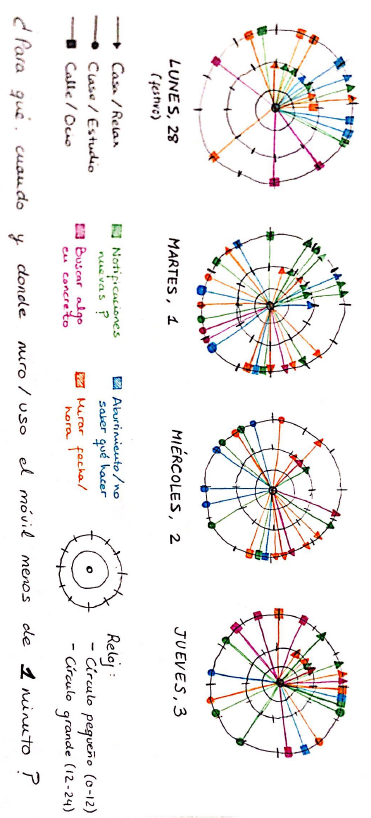 LUNES, 28
(festivo)
MARTES, 1
MIÉRCOLES, 2
JUEVES, 3
Casa / Relax
Clase / Estudio
Calle / Ocio
Notificaciones
nuevas ?
Buscar algo
en concreto
Aburrimiento / no
saber qué hacer
Mirar fecha /
hora
Reloj :
- Círculo pequeño (0-12)
- Círculo grande (12-24)
¿Para qué, cuando y donde miro / uso el móvil menos de 1 minuto ?